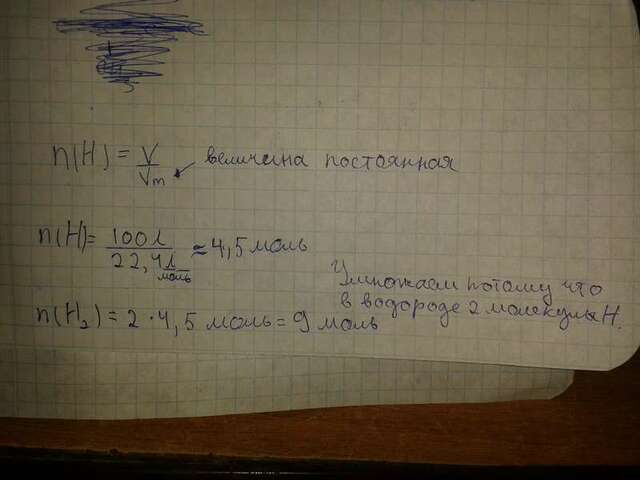 n(H) = V/Vm ← величина постоянная
n(H) = 100л / 22,4 л/моль ≈ 4,5 моль
Умножаем потому что
в водороде 2 молекулы H.
n(H₂) = 2 · 4,5 моль = 9 моль